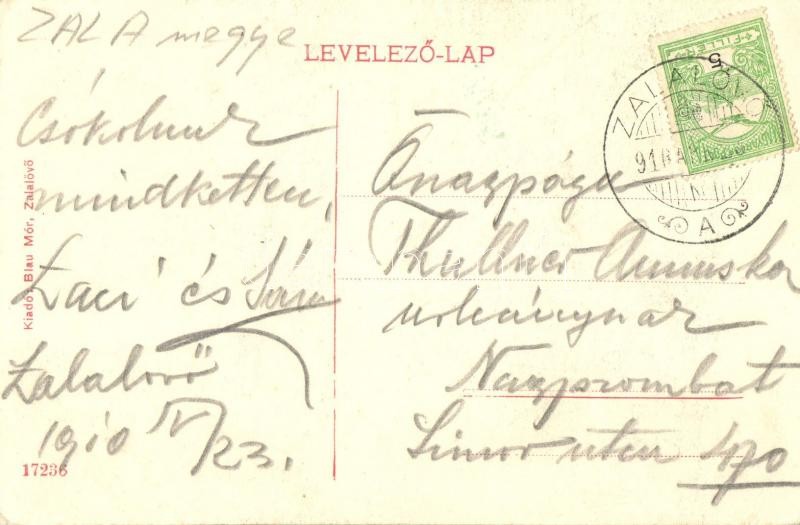 ZALA megye
LEVELEZŐ-LAP
FILLÉR
5
ZALALÖVŐ
A
Csókolnak
mindketten,
Laci és Sári
Zalalövő
1910 IV/23.
Őnagysága
Thullner Annuska
urleánynak
Nagyszombat
utca 470
Kiadó: Blau Mór, Zalalövő
17236